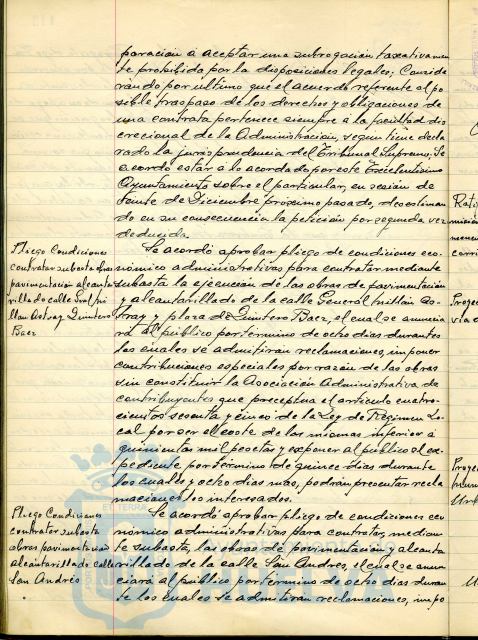 paración a aceptar una subrogación taxativamen
te prohibida por la disposiciones legales; Conside
rando por ultimo que el acuerdo referente al po
sible traspaso de los derechos y obligaciones de
una contrata pertenece siempre a la facultad dis
crecional de la Administración, segun tiene decla
rado la jurisprudencia del Tribunal Supremo, Se
acordo estar á lo acordado por este Excelentisimo
Ayuntamiento sobre el particular, en sesión de
veinte de Diciembre próximo pasado, desestiman
do en su consecuencia la petición por segunda vez
deducida.
Pliego Condiciones
contratar subasta obras
pavimentación alcanta
rillado calle Gral Mi
llan Astray Quintero
Baez
Se acordó aprobar pliego de condiciones eco
nómico administrativas para contratar mediante
subasta la ejecución de las obras de pavimentación
y alcantarillado de la calle General Millán As
tray y plaza de Quintero Baez, el cual se anuncia
rá al público por término de ocho dias durante
los cuales se admitiran reclamaciones, imponer
contribuciones especiales por razón de las obras
sin constituir la Asociación Administrativa de
contribuyentes que preceptua el articulo cuatro
cientos sesenta y cinco de la Ley de Régimen Lo
cal por ser el coste de las mismas inferior á
quinientas mil pesetas y exponer al público el ex
pediente por término de quince dias durante
los cuales y ocho dias mas, podrán presentar recla
maciones los interesados.
Pliego Condiciones
contratar subasta
obras pavimentación
alcantarillado calle
San Andrés
Se acordó aprobar pliego de condiciones eco
nómico administrativas para contratar, median
te subasta, las obras de pavimentación y alcanta
rillado de la calle San Andres, el cual se anun
ciará al público por término de ocho dias duran
te los cuales se admitiran reclamaciones, impo